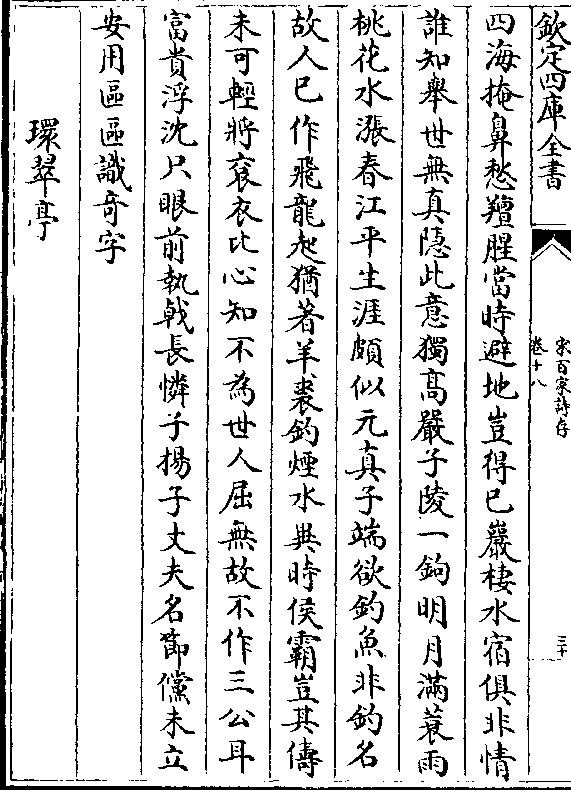 欽定四庫全書
宋百家詩存
卷十八
三十
四海掩鼻愁羶腥當時避地豈得已巖棲水宿俱非情
誰知舉世無真隱此意獨高嚴子陵一鉤明月滿蓑雨
桃花水漲春江平生涯頗似元真子端欲釣魚非釣名
故人已作飛龍起猶著羊裘釣煙水與時侯霸豈其儔
未可輕將袞衣比心知不為世人屈無故不作三公耳
富貴浮沈只眼前執戟長憐子揚子丈夫名節儻未立
安用區區識奇字
環翠亭